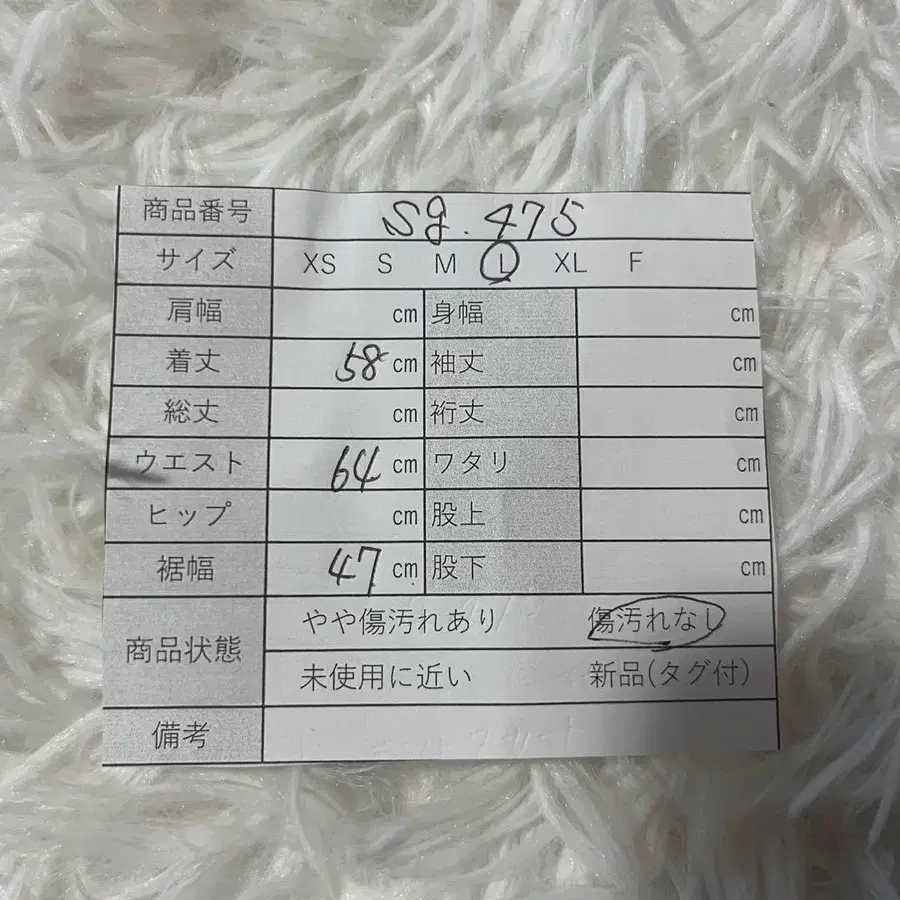 商品番号 Sg.475
サイズ XS S M L XL F
肩幅 cm 身幅 cm
着丈 58 cm 袖丈 cm
総丈 cm 裄丈 cm
ウエスト 64 cm ワタリ cm
ヒップ cm 股上 cm
裾幅 47 cm 股下 cm
やや傷汚れあり 傷汚れなし
商品状態
未使用に近い 新品(タグ付)
備考